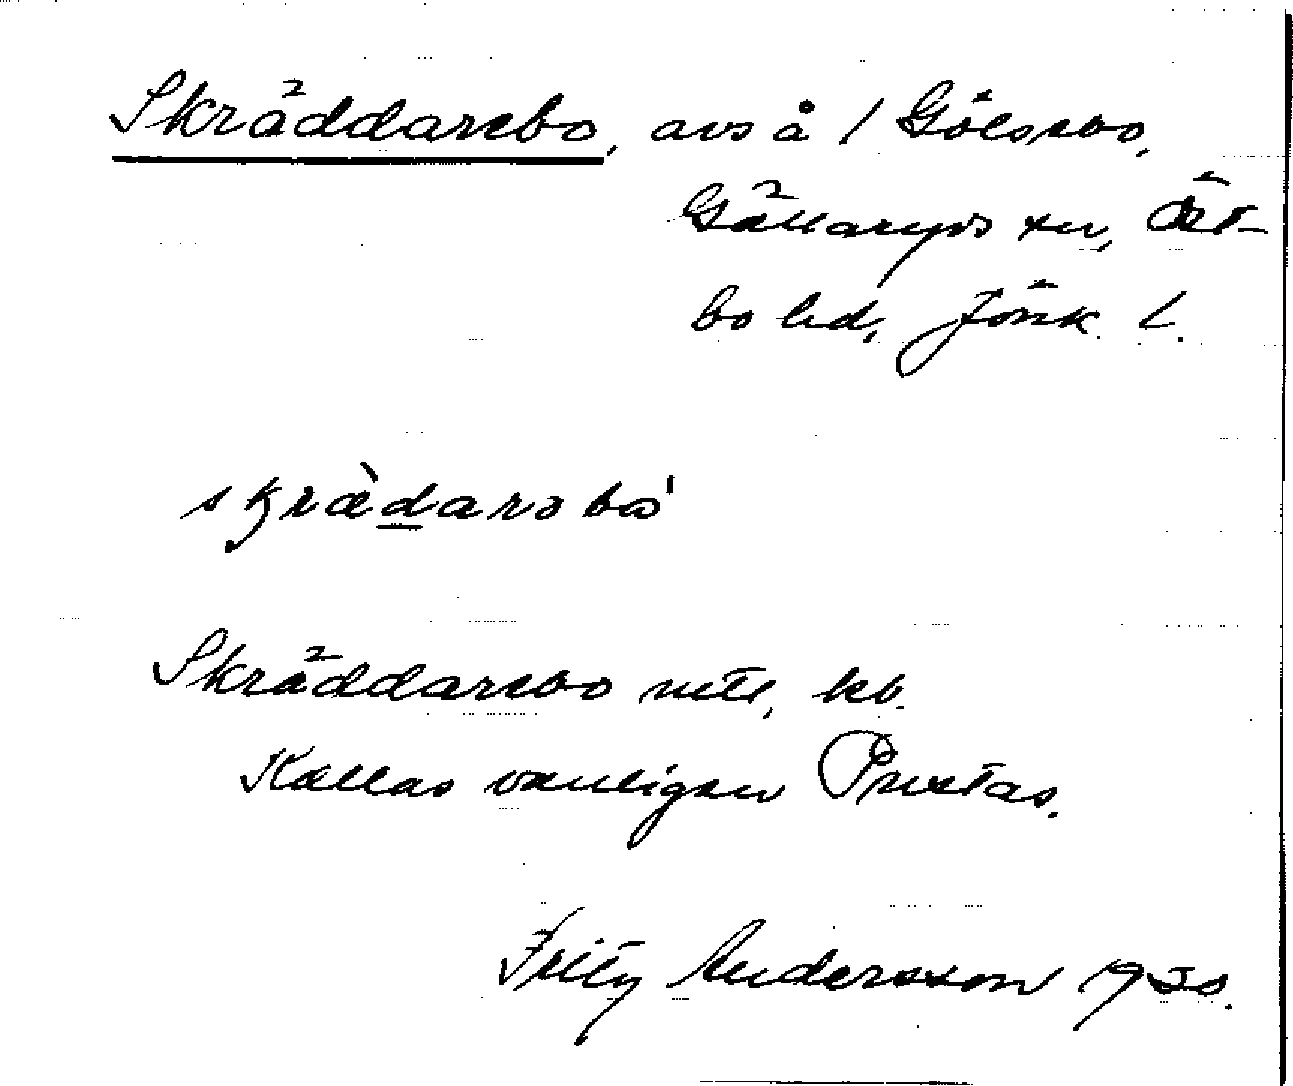 Skräddarebo, avs å 1 Gölsebo,
Gällaryds sn, Öst-
bo hd, Jönk. l.
skræ̀darəbo'
Skräddarebo mtl, kb.
Kallas vanligen Prustas.
Fritz Andersson 1930.